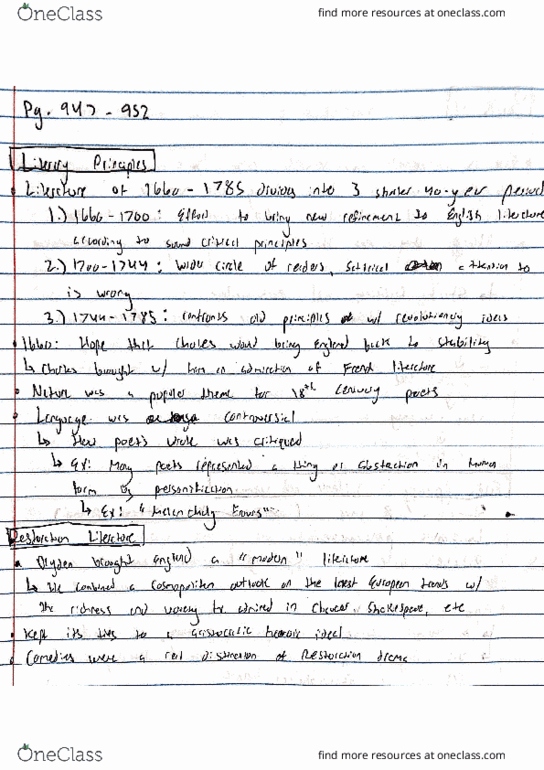 OneClass find more resources at oneclass.com
Pg. 947 - 952
Literary Principles
Literature of 1660 - 1785 divides into 3 shorter 40-year periods
1.) 1660-1700: Effort to bring new refinement to English literature
according to sound critical principles
2.) 1700-1744: wide circle of readers, satirical attention to
is wrong
3.) 1744-1785: confronts old principles w/ revolutionary ideas
1660: Hope that Charles would bring England back to stability
↳ Charles brought w/ him an admiration of French literature
Nature was a popular theme for 18th century poets
Language was controversial
↳ How poets wrote was critiqued
↳ Ex: Many poets represented a thing or abstraction in human
form by personification
↳ Ex: "Melancholy
Restoration Literature
Dryden brought England a "modern" literature
↳ He combined a cosmopolitan outlook on the latest European trends w/
the richness and variety he admired in Chaucer, Shakespeare, etc
Kept its ties to a aristocratic heroic ideal
Comedies were a real distinction of Restoration drama
OneClass find more resources at oneclass.com